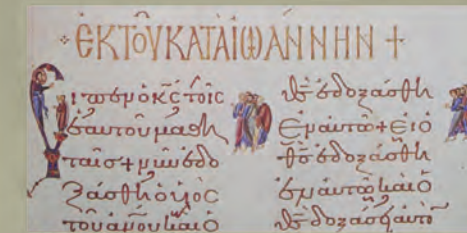 ἘΚ ΤΟῦ ΚΑΤΑ ἸΩΑΝΝΗΝ +
Εἶπεν ὁ κ̅ς̅ τοῖς
ἑαυτοῦ μαθη
ταῖς + νῦν ἐδο
ξάσθη ὁ υἱὸς
τοῦ ἀν̅ου καὶ ὁ
θ̅ς̅ ἐδοξάσθη
ἐν αὐτῶ + Εἰ ὁ
θ̅ς̅ ἐδοξάσθη
ἐν αὐτῶ καὶ ὁ
θ̅ς̅ δοξάσει αὐτὸ